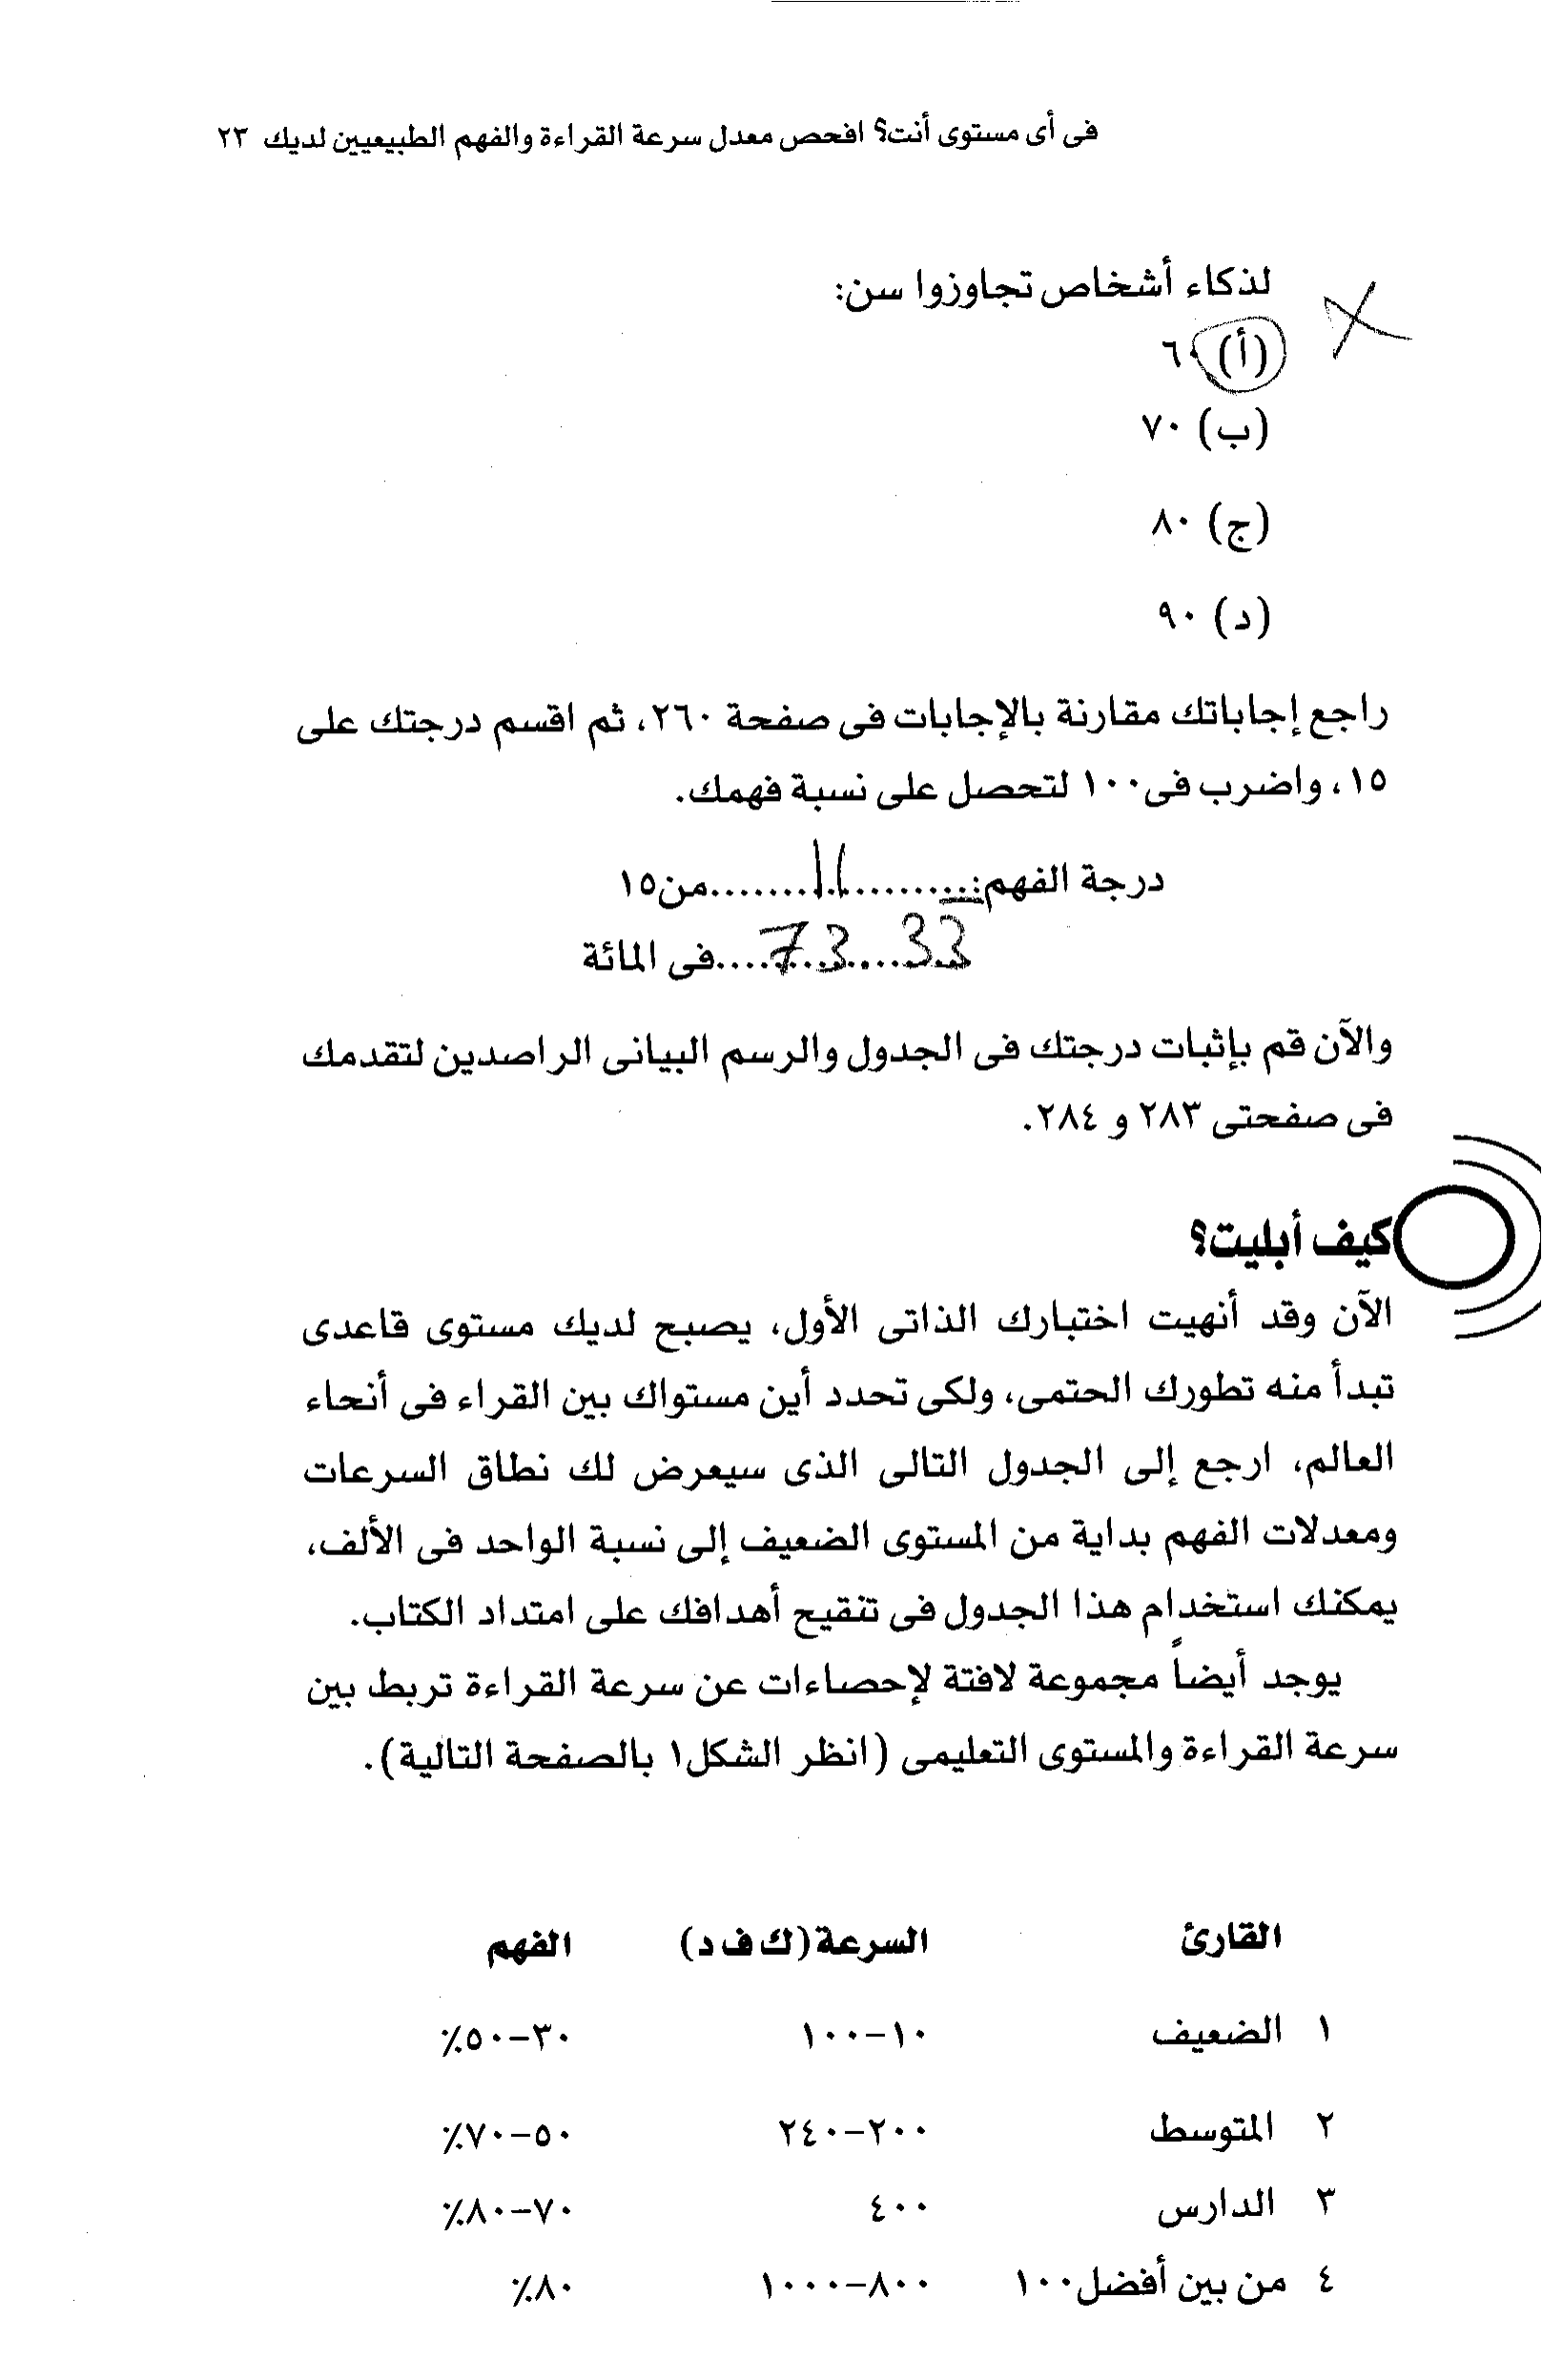 فى أى مستوى أنت؟ افحص معدل سرعة القراءة والفهم الطبيعيين لديك ٢٣
لذكاء أشخاص تجاوزوا سن:
(أ) ٦٠
(ب) ٧٠
(ج) ٨٠
(د) ٩٠
راجع إجاباتك مقارنة بالإجابات فى صفحة ٢٦٠، ثم اقسم درجتك على
١٥، واضرب فى١٠٠ لتحصل على نسبة فهمك.
درجة الفهم:..........11........من١٥
73.33....فى المائة
والآن قم بإثبات درجتك فى الجدول والرسم البيانى الراصدين لتقدمك
فى صفحتى ٢٨٣ و ٢٨٤.
كيف أبليت؟
الآن وقد أنهيت اختبارك الذاتى الأول، يصبح لديك مستوى قاعدى
تبدأ منه تطورك الحتمى، ولكى تحدد أين مستواك بين القراء فى أنحاء
العالم، ارجع إلى الجدول التالى الذى سيعرض لك نطاق السرعات
ومعدلات الفهم بداية من المستوى الضعيف إلى نسبة الواحد فى الألف،
يمكنك استخدام هذا الجدول فى تنقيح أهدافك على امتداد الكتاب.
يوجد أيضاً مجموعة لافتة لإحصاءات عن سرعة القراءة تربط بين
سرعة القراءة والمستوى التعليمى (انظر الشكل١ بالصفحة التالية).
القارئ السرعة(ك ف د) الفهم
١ الضعيف ١٠–١٠٠ ٣٠–٥٠٪
٢ المتوسط ٢٠٠–٢٤٠ ٥٠–٧٠٪
٣ الدارس ٤٠٠ ٧٠–٨٠٪
٤ من بين أفضل١٠٠ ٨٠٠–١٠٠٠ ٨٠٪